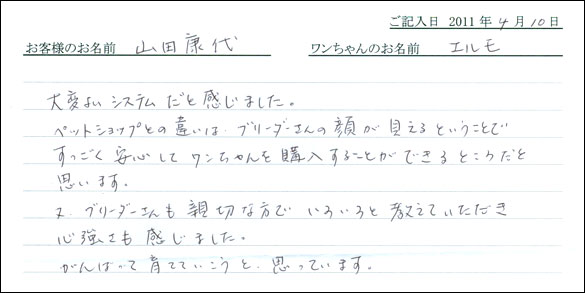 ご記入日 2011年4月10日
お客様のお名前 山田康代 ワンちゃんのお名前 エルモ
大変よいシステムだと感じました。
ペットショップとの違いは、ブリーダーさんの顔が見えるということで
すっごく安心してワンちゃんを購入することができるところだと
思います。
又、ブリーダーさんも親切な方でいろいろと教えていただき
心強さも感じました。
がんばって育てていこうと、思っています。